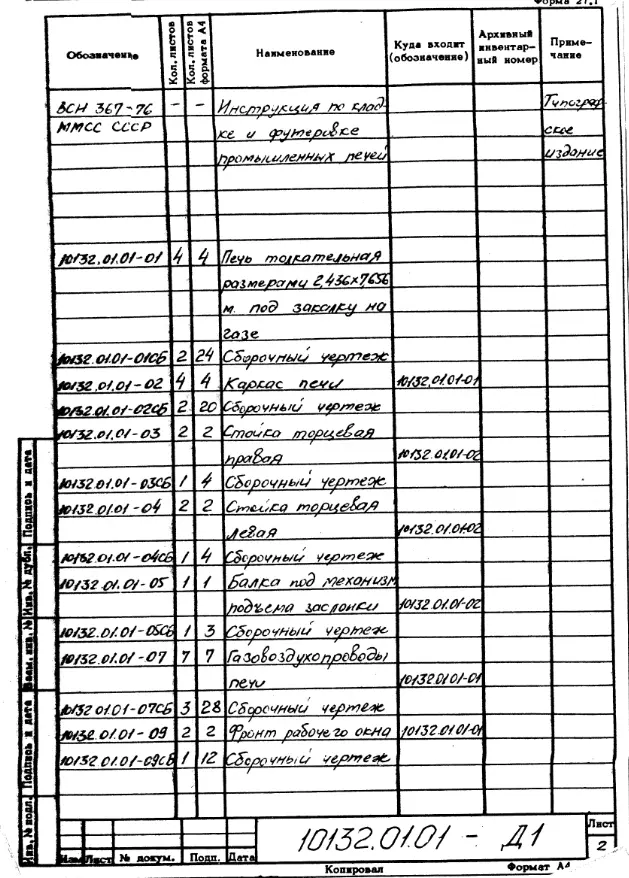 Форма 27.1
Обозначение Кол. листов Кол. листов формата А4 Наименование Куда входит (обозначение) Архивный инвентарный номер Примечание
ВСН 367-76 - - Инструкция по клад- Типограф-
ММСС СССР ке и футеровке ское
промышленных печей издание
10132.01.01-01 4 4 Печь толкательная
размерами 2,436х7,656
м. под закалку на
газе
10132.01.01-01СБ 2 24 Сборочный чертеж
10132.01.01-02 4 4 Каркас печи 10132.01.01-01
10132.01.01-02СБ 2 20 Сборочный чертеж
10132.01.01-03 2 2 Стойка торцевая
правая 10132.01.01-02
10132.01.01-03СБ 1 4 Сборочный чертеж
10132.01.01-04 2 2 Стойка торцевая
левая 10132.01.01-02
10132.01.01-04СБ 1 4 Сборочный чертеж
10132.01.01-05 1 1 Балка под механизм
подъема заслонки 10132.01.01-02
10132.01.01-05СБ 1 3 Сборочный чертеж
10132.01.01-07 7 7 Газовоздухопроводы
печи 10132.01.01-01
10132.01.01-07СБ 3 28 Сборочный чертеж
10132.01.01-09 2 2 Фронт рабочего окна 10132.01.01-01
10132.01.01-09СБ 1 12 Сборочный чертеж
Инв. № подл. Подпись и дата Взам. инв. № Инв. № дубл. Подпись и дата
Изм Лист № докум. Подп. Дата
10132.01.01 - Д1
Лист
2
Копировал Формат А4